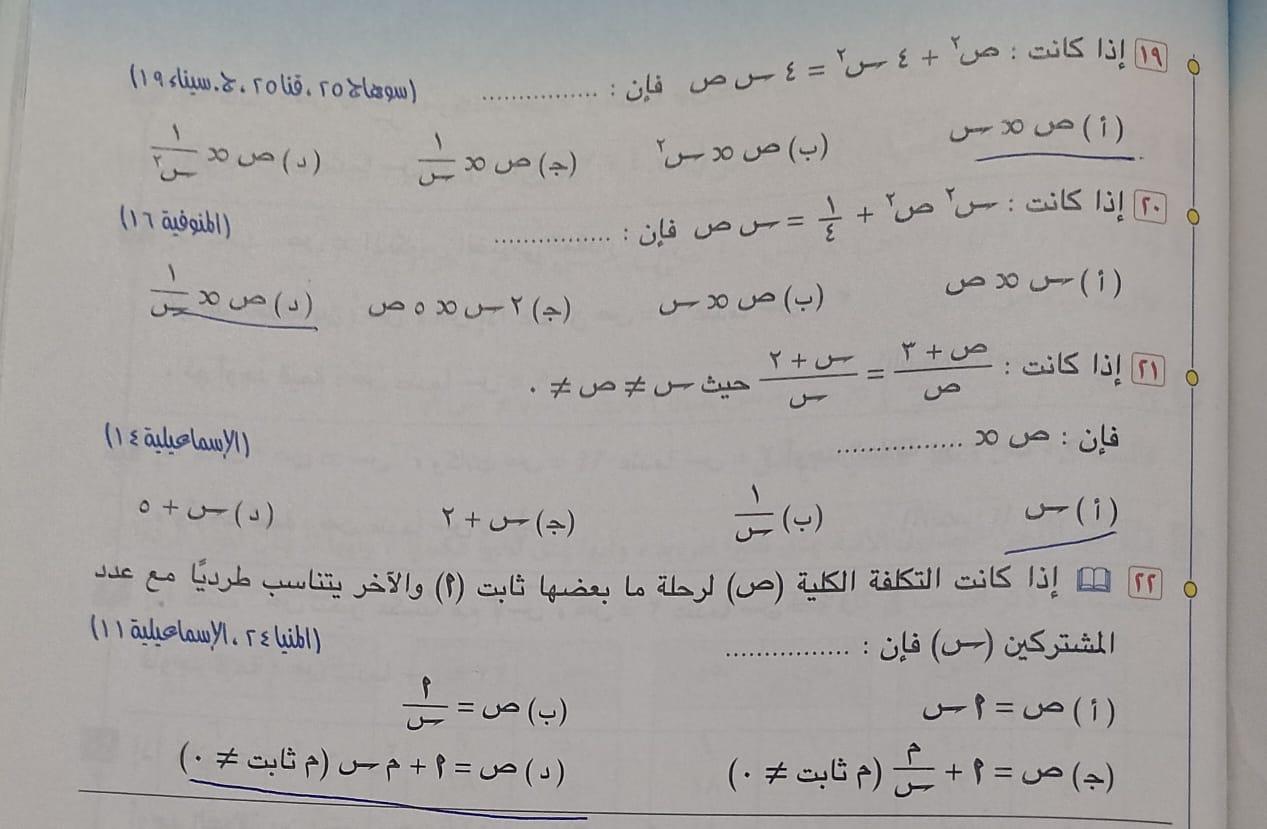 ١٩ إذا كانت : ص٢ + ٤ س٢ = ٤ س ص فإن : ............... (سوهاج ٢٥ ، قنا ٢٥ ، ج. سيناء ١٩)
(أ) ص ∝ س (ب) ص ∝ س٢ (ج) ص ∝ ١/س (د) ص ∝ ١/س٢
٢٠ إذا كانت : س٢ ص٢ + ١/٤ = س ص فإن : ............... (المنوفية ١٦)
(أ) س ∝ ص (ب) ص ∝ س (ج) ٢ س ∝ ٥ ص (د) ص ∝ ١/س
٢١ إذا كانت : (ص + ٣)/ص = (س + ٢)/س حيث س ≠ ص ≠ ٠
فإن : ص ∝ ............... (الإسماعيلية ١٤)
(أ) س (ب) ١/س (ج) س + ٢ (د) س + ٥
٢٢ إذا كانت التكلفة الكلية (ص) لرحلة ما بعضها ثابت (٩) والآخر يتناسب طرديًا مع عدد
المشتركين (س) فإن : ............... (المنيا ٢٤ ، الإسماعيلية ١١)
(أ) ص = ٩ س (ب) ص = ٩/س
(ج) ص = ٩ + م/س (م ثابت ≠ ٠) (د) ص = ٩ + م س (م ثابت ≠ ٠)